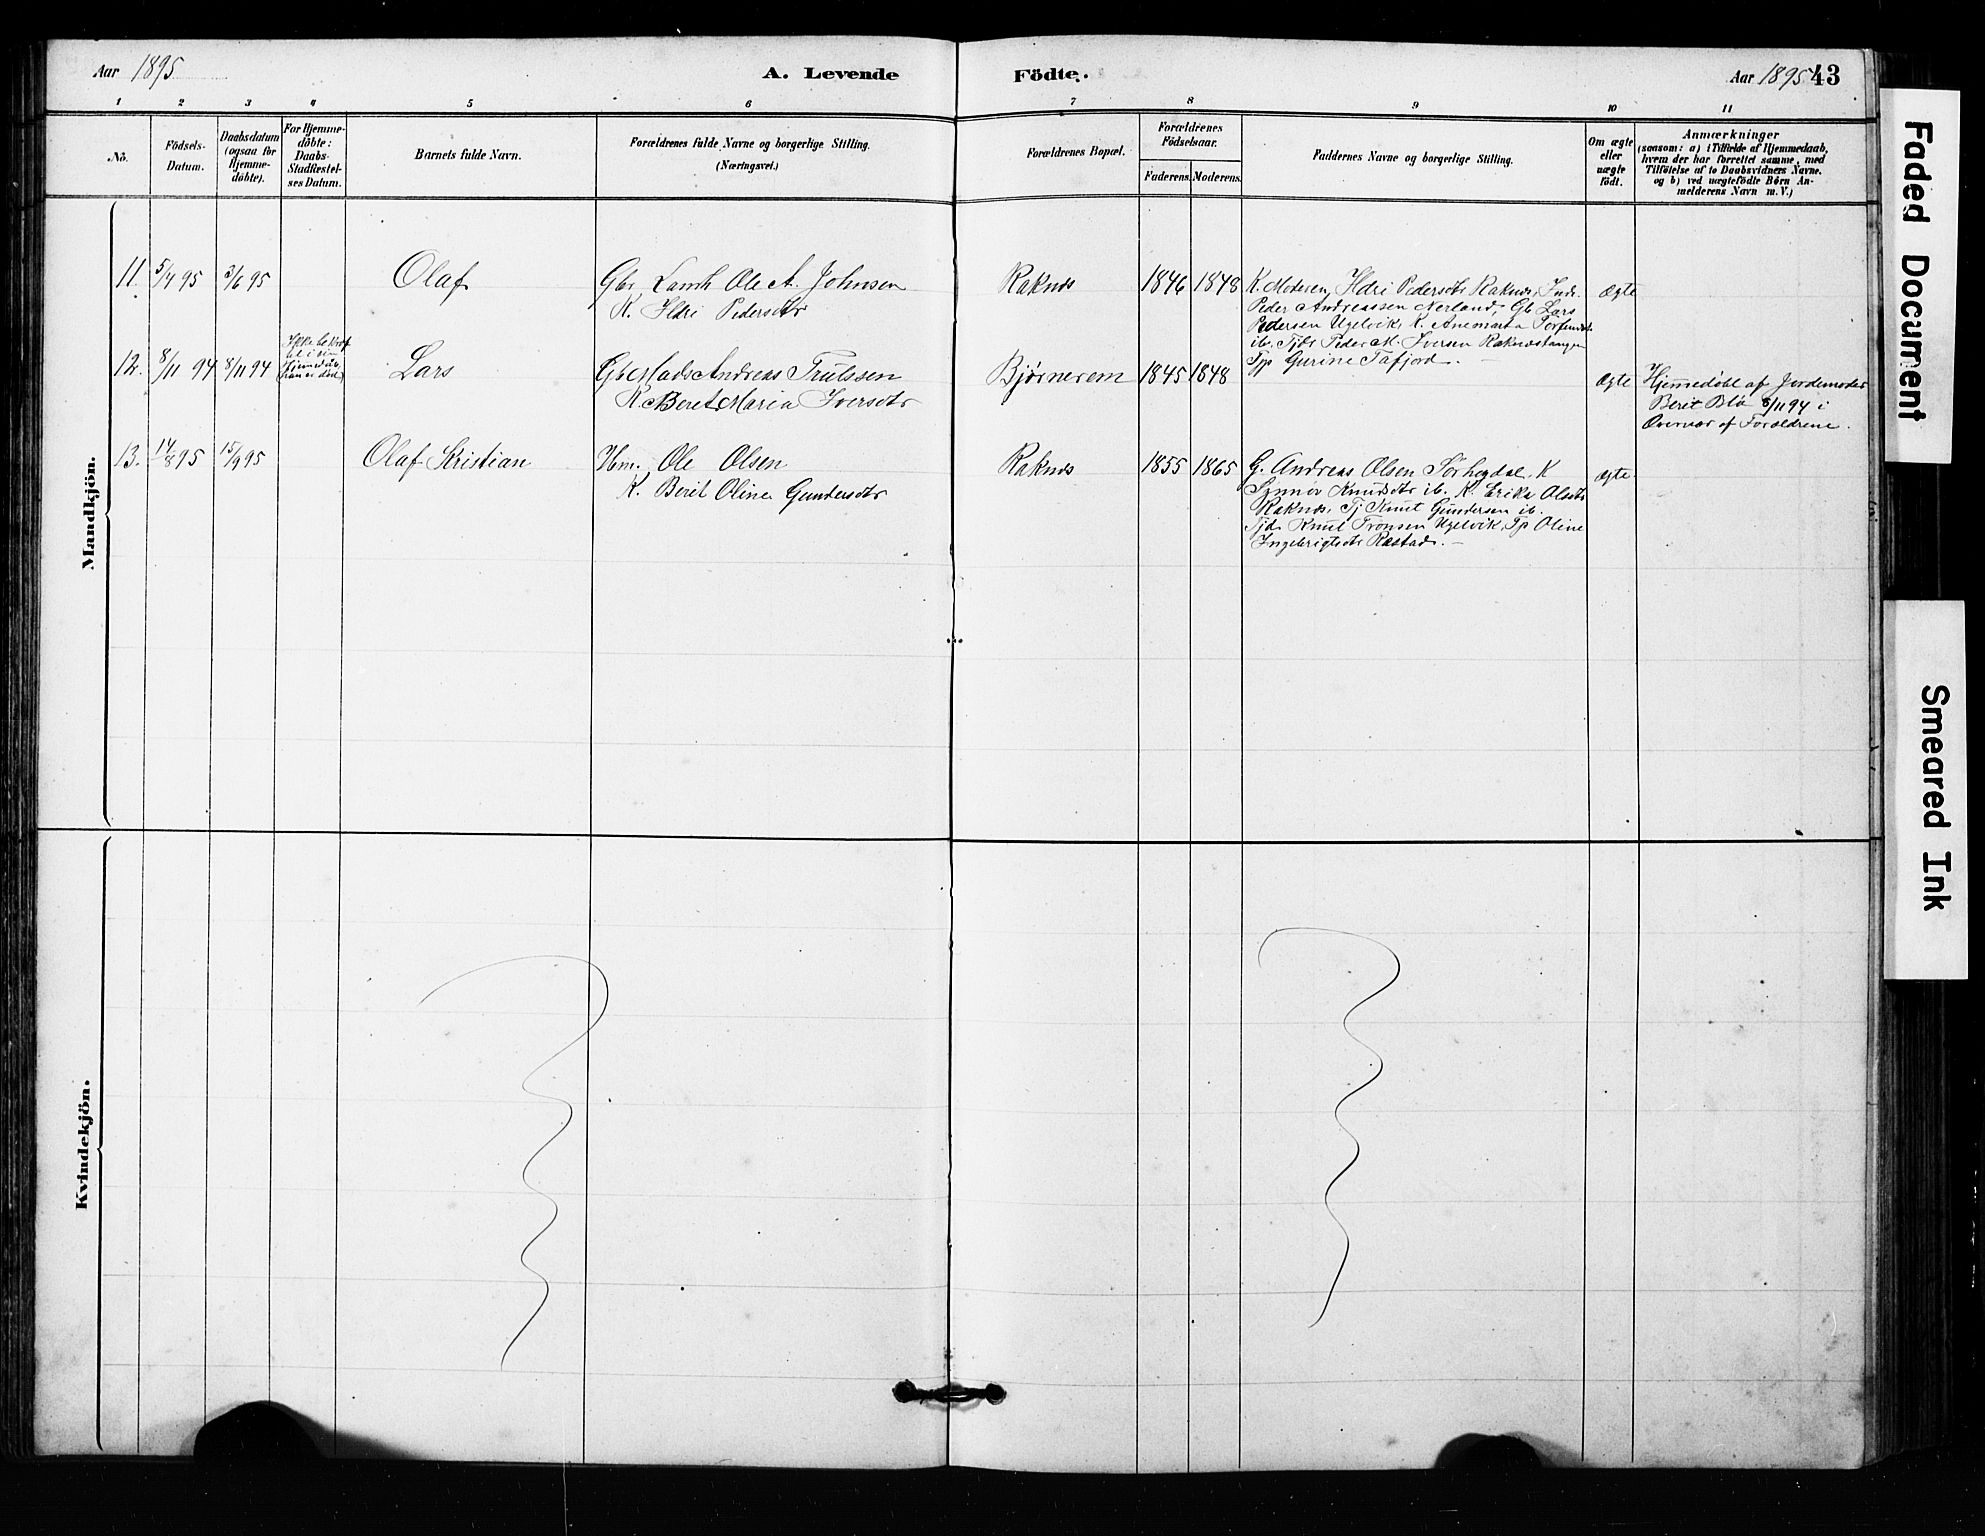 Aar 1895
A. Levende
Födte.
Aar 1895
43
1 2 3 4 5 6 7 8 9 10 11
No.
Födsels-
Datum.
Daabsdatum
(ogsaa for
Hjemme-
döbte).
For Hjemme-
döbte:
Daabs-
Stadfestel-
ses Datum.
Barnets fulde Navn.
Forældrenes fulde Navne og borgerlige Stilling.
(Næringsvei.)
Forældrenes Bopæl.
Forældrenes
Födselsaar.
Faderens. Moderens.
Faddernes Navne og borgerlige Stilling.
Om ægte
eller
uægte
födt.
Anmærkninger
(saasom: a) i Tilfælde af Hjemmedaab,
hvem der har forrettet samme, med
Tilföielse af to Daabsvidners Navne,
og b) ved uægtefödte Börn An-
melderens Navn m. V.)
Mandkjön.
11. 5/4 95 3/6 95 Olaf
Gbr Ole A. Johnsen
K. Ildri Pedersdtr
Raknes 1846 1848
K. Moderen, Ildri Pedersdtr Raknes,
Peder Andreassen Nerland, Gb Lars
Pedersen Ugelvik, K. Anemarta
ib. Tjdr Peder M. Iversen Raknestangen
Tjp Gurine Tafjord. —
ægte
12. 8/11 94 8/11 94
Ikke
Lars
Gb Mads Andreas Trulssen
K. Beret Maria Iversdtr
Bjørnerem 1845 1848
ægte
Hjemmedøbt af Jordemoder
Berit Blø 8/11 94 i
Overvær af Forældrene.
13. 14/8 95 15/9 95 Olaf Kristian
Hm. Ole Olsen
K. Berit Oline Gundersdtr
Raknes 1855 1865
G. Andreas Olsen Sørhegdal, K
Synnøv Knudsdtr ib. K. Erika Olsdtr
Raknes, Tj Knut Gundersen ib.
Tjd. Knut Tronsen Ugelvik, Tp Oline
Ingebrigtsdtr Restad. —
ægte
Kvindekjön.
Faded Document
Smeared Ink